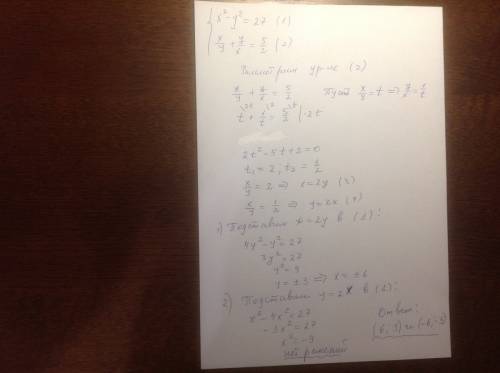 { x² - y² = 27 (1)
x/y + y/x = 5/2 (2)
Рассмотрим ур-ие (2)
x/y + y/x = 5/2 Пусть x/y = t ⇒ y/x = 1/t
t + 1/t = 5/2 | ·2t
2t² - 5t + 2 = 0
t₁ = 2, t₂ = 1/2
x/y = 2 ⇒ x = 2y (3)
x/y = 1/2 ⇒ y = 2x (4)
1) Подставим x = 2y в (1):
4y² - y² = 27
3y² = 27
y² = 9
y = ±3 ⇒ x = ±6
2) Подставим y = 2x в (1):
x² - 4x² = 27
-3x² = 27
x² = -9
нет решений
Ответ:
(6; 3) и (-6; -3)